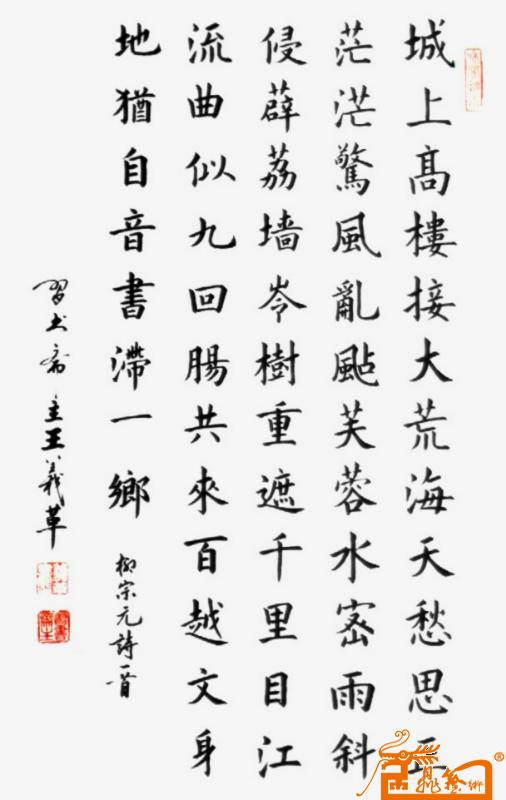 城上髙樓接大荒海天愁思正
茫茫驚風亂颭芙蓉水密雨斜
侵薜荔墙岺樹重遮千里目江
流曲似九回腸共來百越文身
地猶自音書滯一鄉
柳宗元詩一首
習书斋主王義革